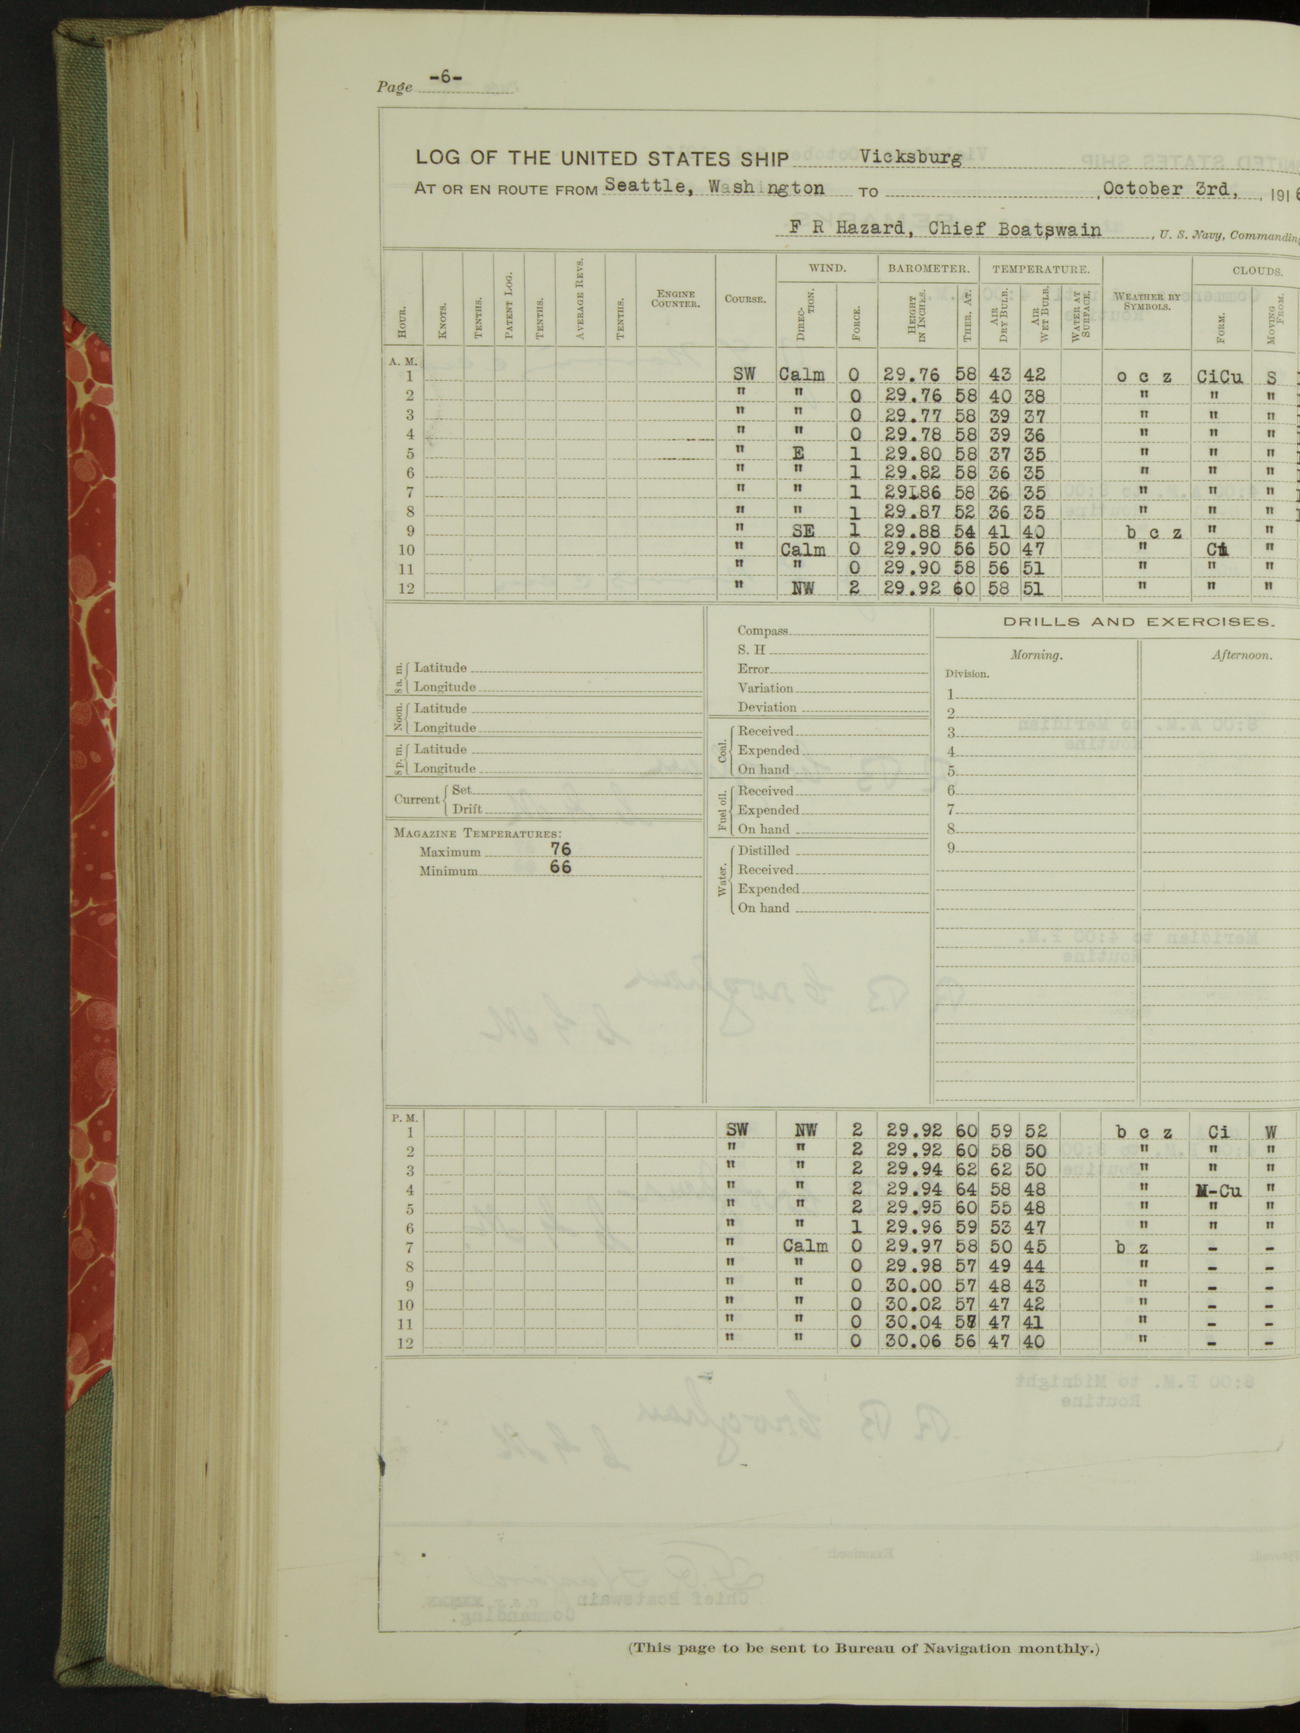 Page -6-
LOG OF THE UNITED STATES SHIP Vicksburg
AT OR EN ROUTE FROM Seattle, Washington TO , October 3rd, , 1916
F R Hazard, Chief Boatswain , U. S. Navy, Commanding
WIND. BAROMETER. TEMPERATURE. CLOUDS.
HOUR. KNOTS. TENTHS. PATENT LOG. TENTHS. AVERAGE REVS. TENTHS. ENGINE COUNTER. COURSE. DIRECTION. FORCE. HEIGHT IN INCHES. THER. AT. AIR DRY BULB. AIR WET BULB. WATER AT SURFACE. WEATHER BY SYMBOLS. FORM. MOVING FROM.
A. M.
1 SW Calm 0 29.76 58 43 42 o c z CiCu S
2 " " 0 29.76 58 40 38 " " "
3 " " 0 29.77 58 39 37 " " "
4 " " 0 29.78 58 39 36 " " "
5 " E 1 29.80 58 37 35 " " "
6 " " 1 29.82 58 36 35 " " "
7 " " 1 29.86 58 36 35 " " "
8 " " 1 29.87 52 36 35 " " "
9 " SE 1 29.88 54 41 40 b c z " "
10 " Calm 0 29.90 56 50 47 " Ci "
11 " " 0 29.90 58 56 51 " " "
12 " NW 2 29.92 60 58 51 " " "
8 a. m. Latitude
Longitude
Noon. Latitude
Longitude
8 p. m. Latitude
Longitude
Current Set
Drift
MAGAZINE TEMPERATURES:
Maximum 76
Minimum 66
Compass
S. H
Error
Variation
Deviation
Coal. Received
Expended
On hand
Fuel oil. Received
Expended
On hand
Water. Distilled
Received
Expended
On hand
DRILLS AND EXERCISES.
Morning. Afternoon.
Division.
1
2
3
4
5
6
7
8
9
P. M.
1 SW NW 2 29.92 60 59 52 b c z Ci W
2 " " 2 29.92 60 58 50 " " "
3 " " 2 29.94 62 62 50 " " "
4 " " 2 29.94 64 58 48 " M-Cu "
5 " " 2 29.95 60 55 48 " " "
6 " " 1 29.96 59 53 47 " " "
7 " Calm 0 29.97 58 50 45 b z - -
8 " " 0 29.98 57 49 44 " - -
9 " " 0 30.00 57 48 43 " - -
10 " " 0 30.02 57 47 42 " - -
11 " " 0 30.04 57 47 41 " - -
12 " " 0 30.06 56 47 40 " - -
(This page to be sent to Bureau of Navigation monthly.)